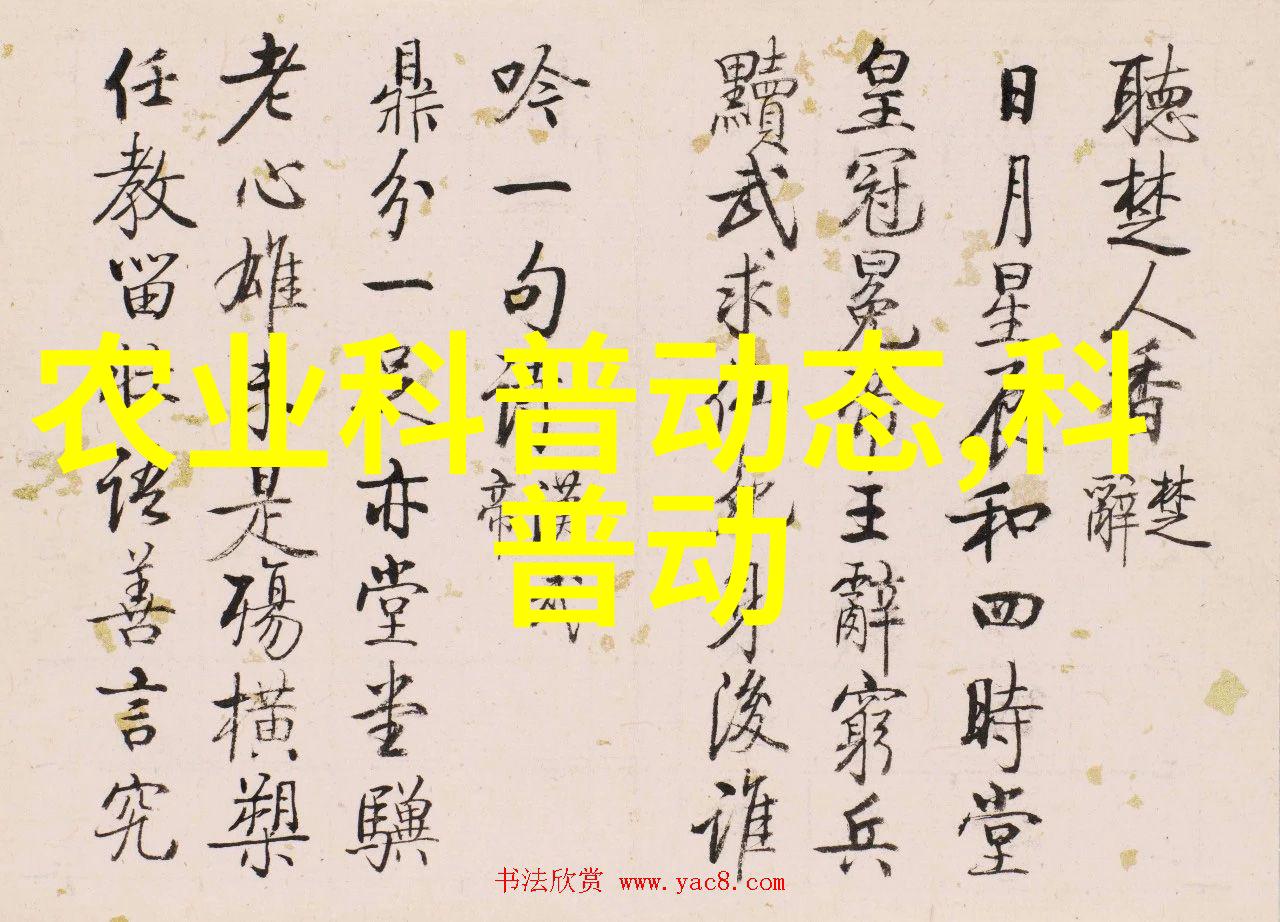 聽楚人香 楚辭
日月星辰和四時堂
皇冠冕帝王辭窮兵
黷武求仙身後誰
吟一句詩 漢武帝
鼎分一足亦堂堂驥
老心雄未是殤橫槊
任教留語善言究
农业科普动态,科
普动
书法欣赏 www.yac8.com